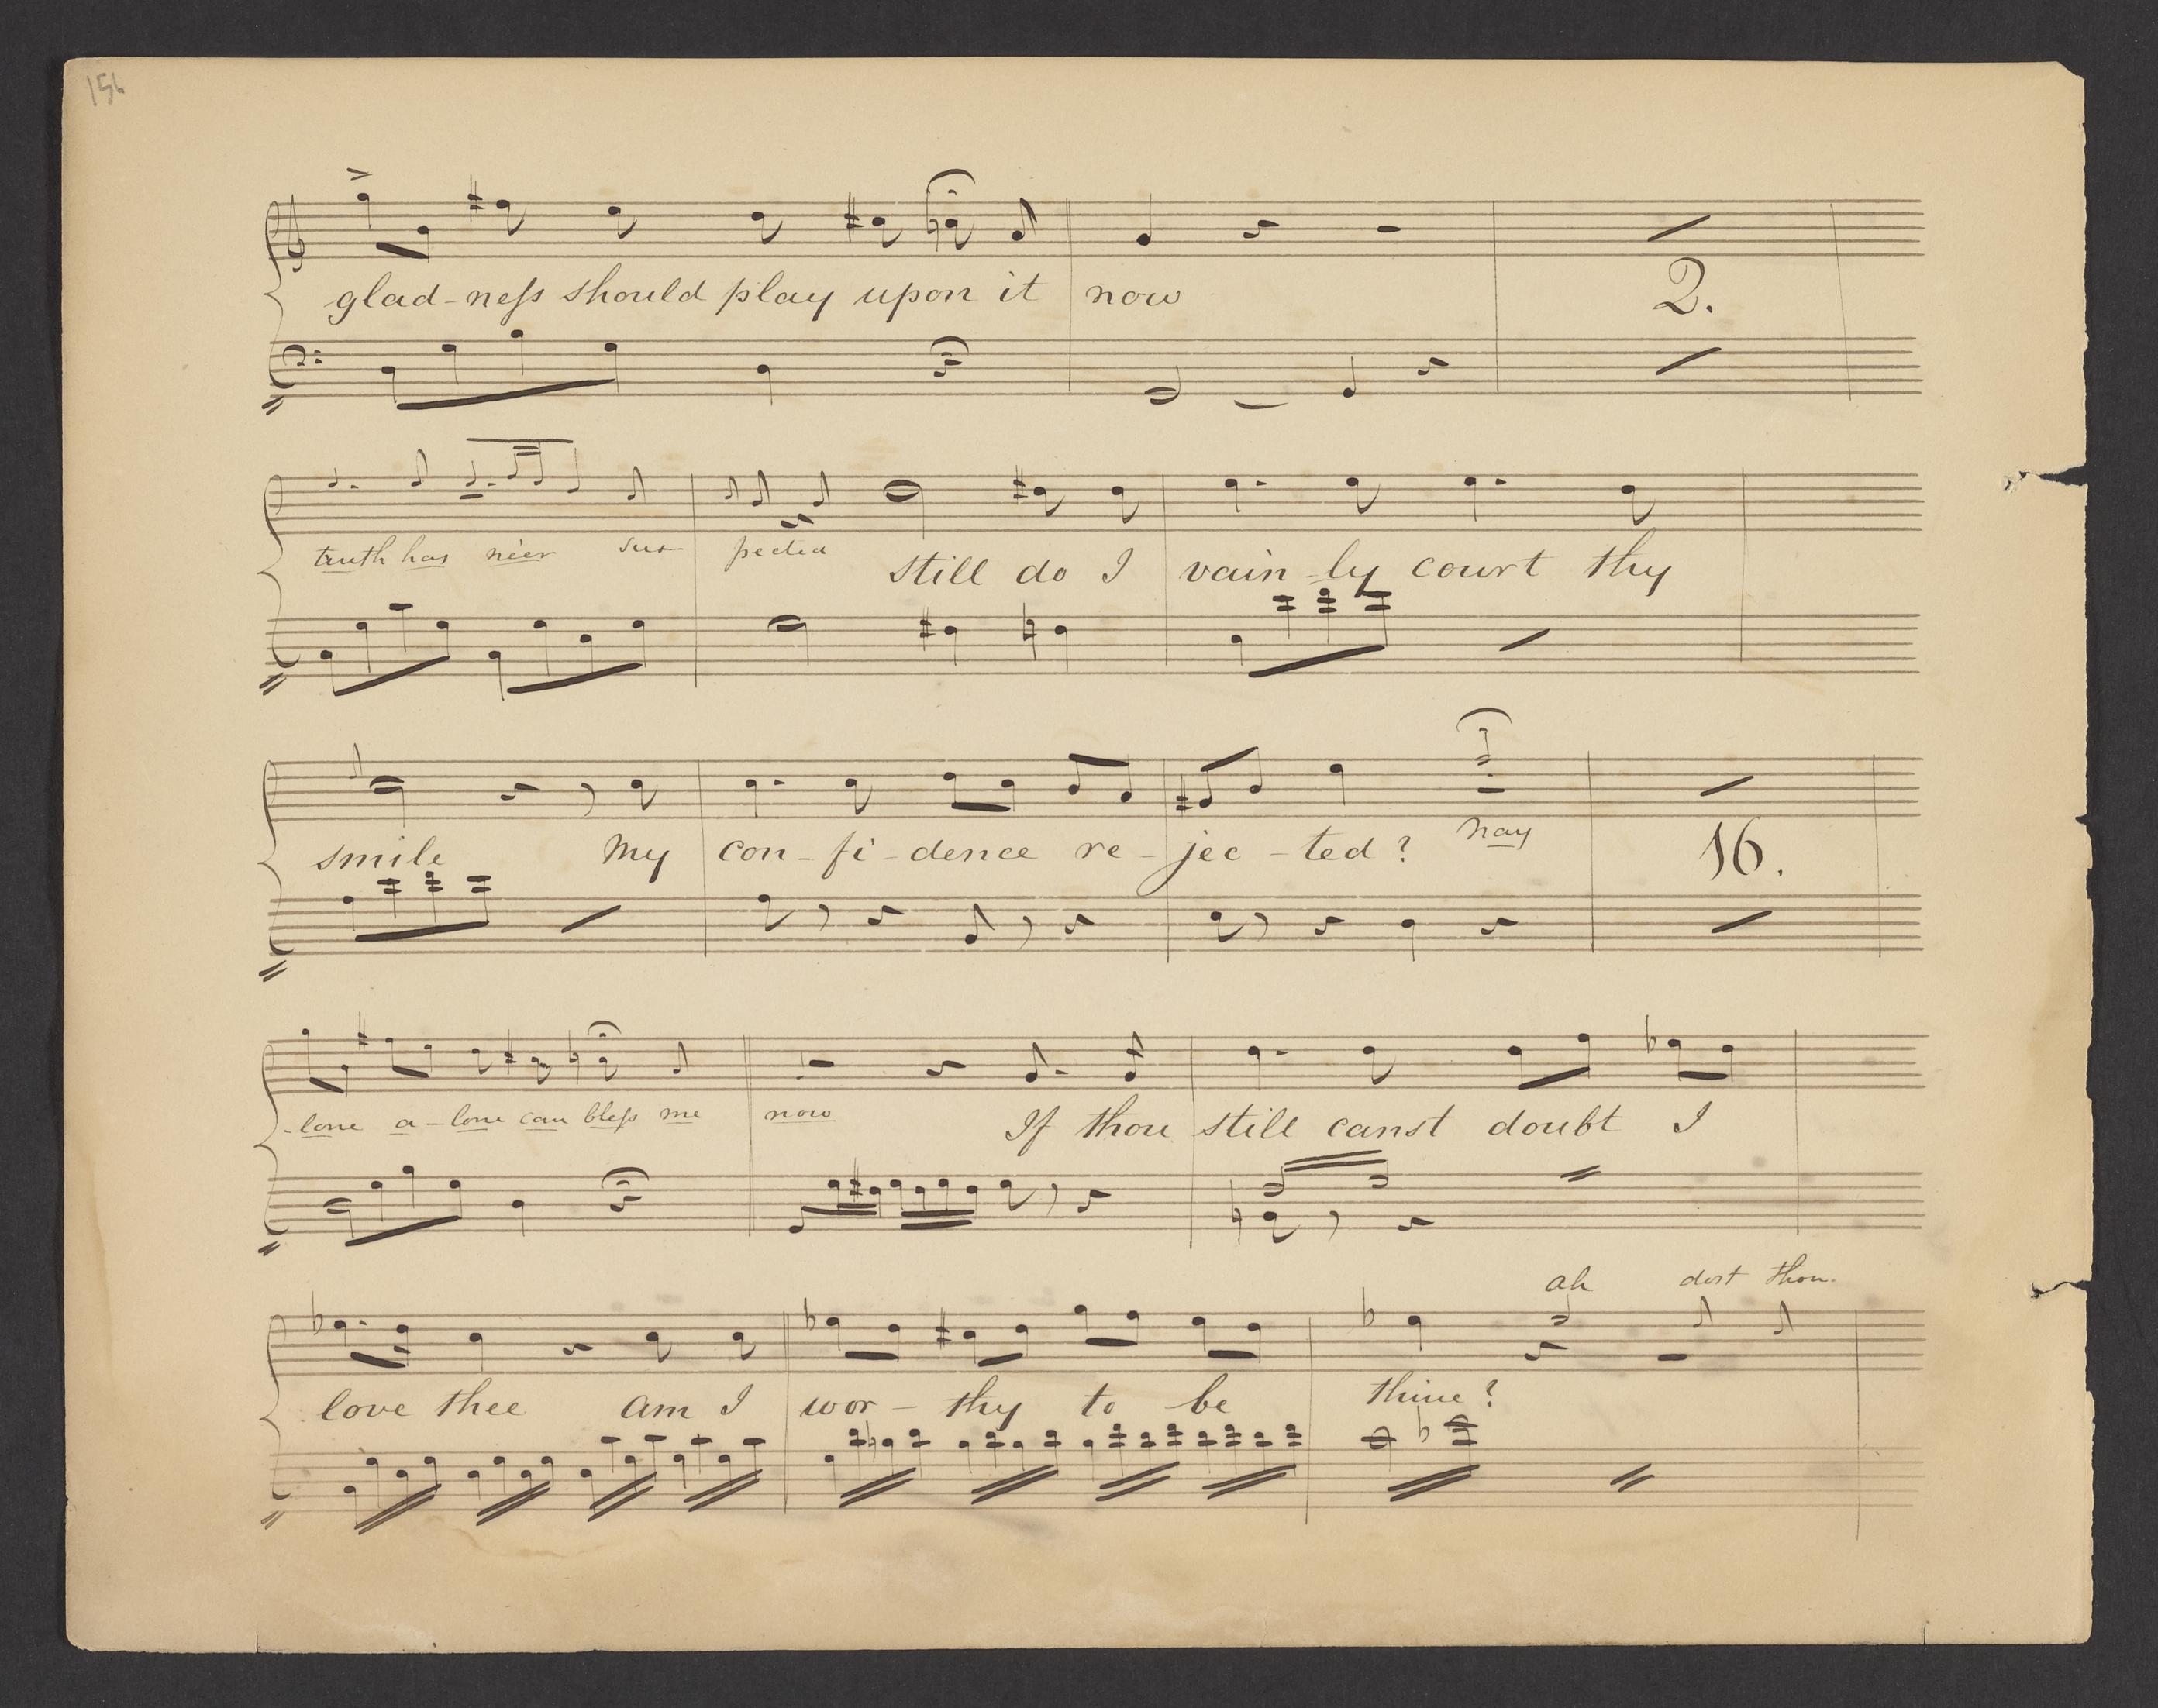 156
glad-neſs should play upon it now
2.
truth has néer sus-pected still do I vain-ly court thy
smile My con-fi-dence re-jec-ted? nay
16.
-lone a-lone can bleſs me now If thou still canst doubt I
ah dost thou
love thee am I wor-thy to be thine?